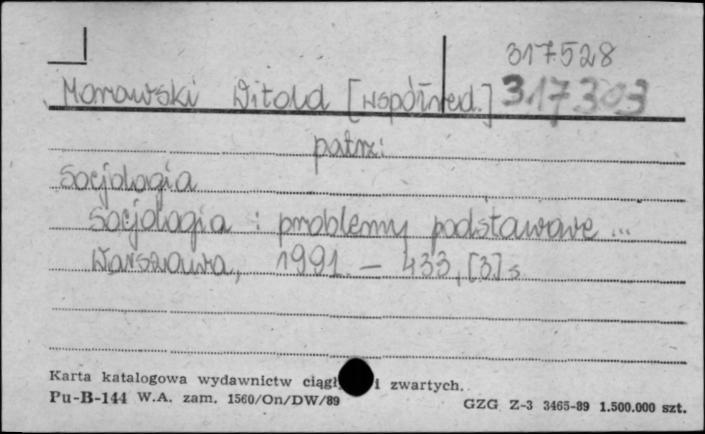 317528
Morawski Witold [współred.] 317303
patrz:
Socjologia
Socjologia : problemy podstawowe ...
Warszawa, 1991. – 433, [3] s
Karta katalogowa wydawnictw ciągł i zwartych.
Pu-B-144 W.A. zam. 1560/On/DW/89
GZG Z-3 3465-89 1.500.000 szt.